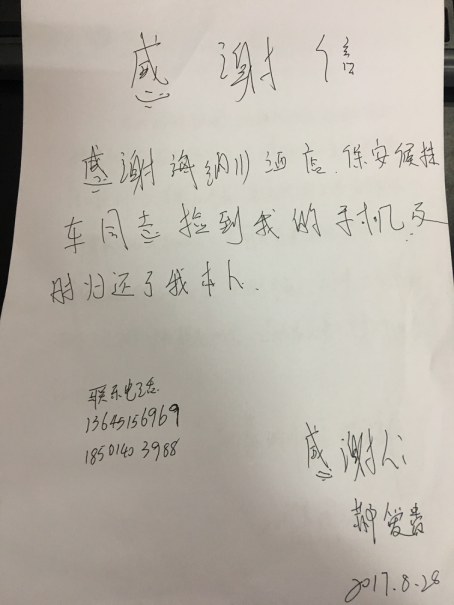 感谢信
感谢海纳川酒店、保安候栓
车同志捡到我的手机及
时归还了我本人.
联系电话
13645156969
18501403988
感谢人:
爱
2017.8.28